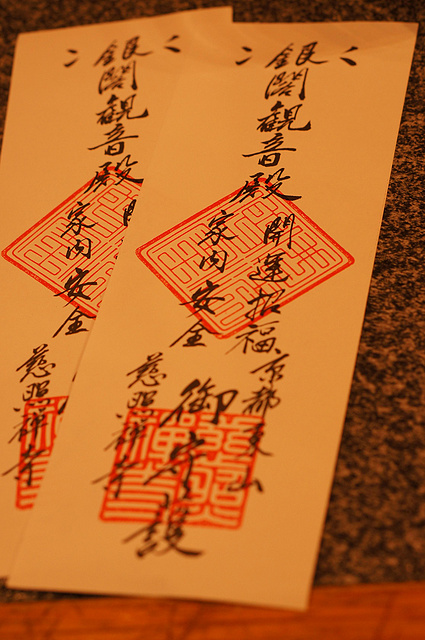 銀閣観音殿
開運招福
家内安全
京都東山
御守護
慈照禅寺
銀閣観音殿
家内安全
慈照禅寺